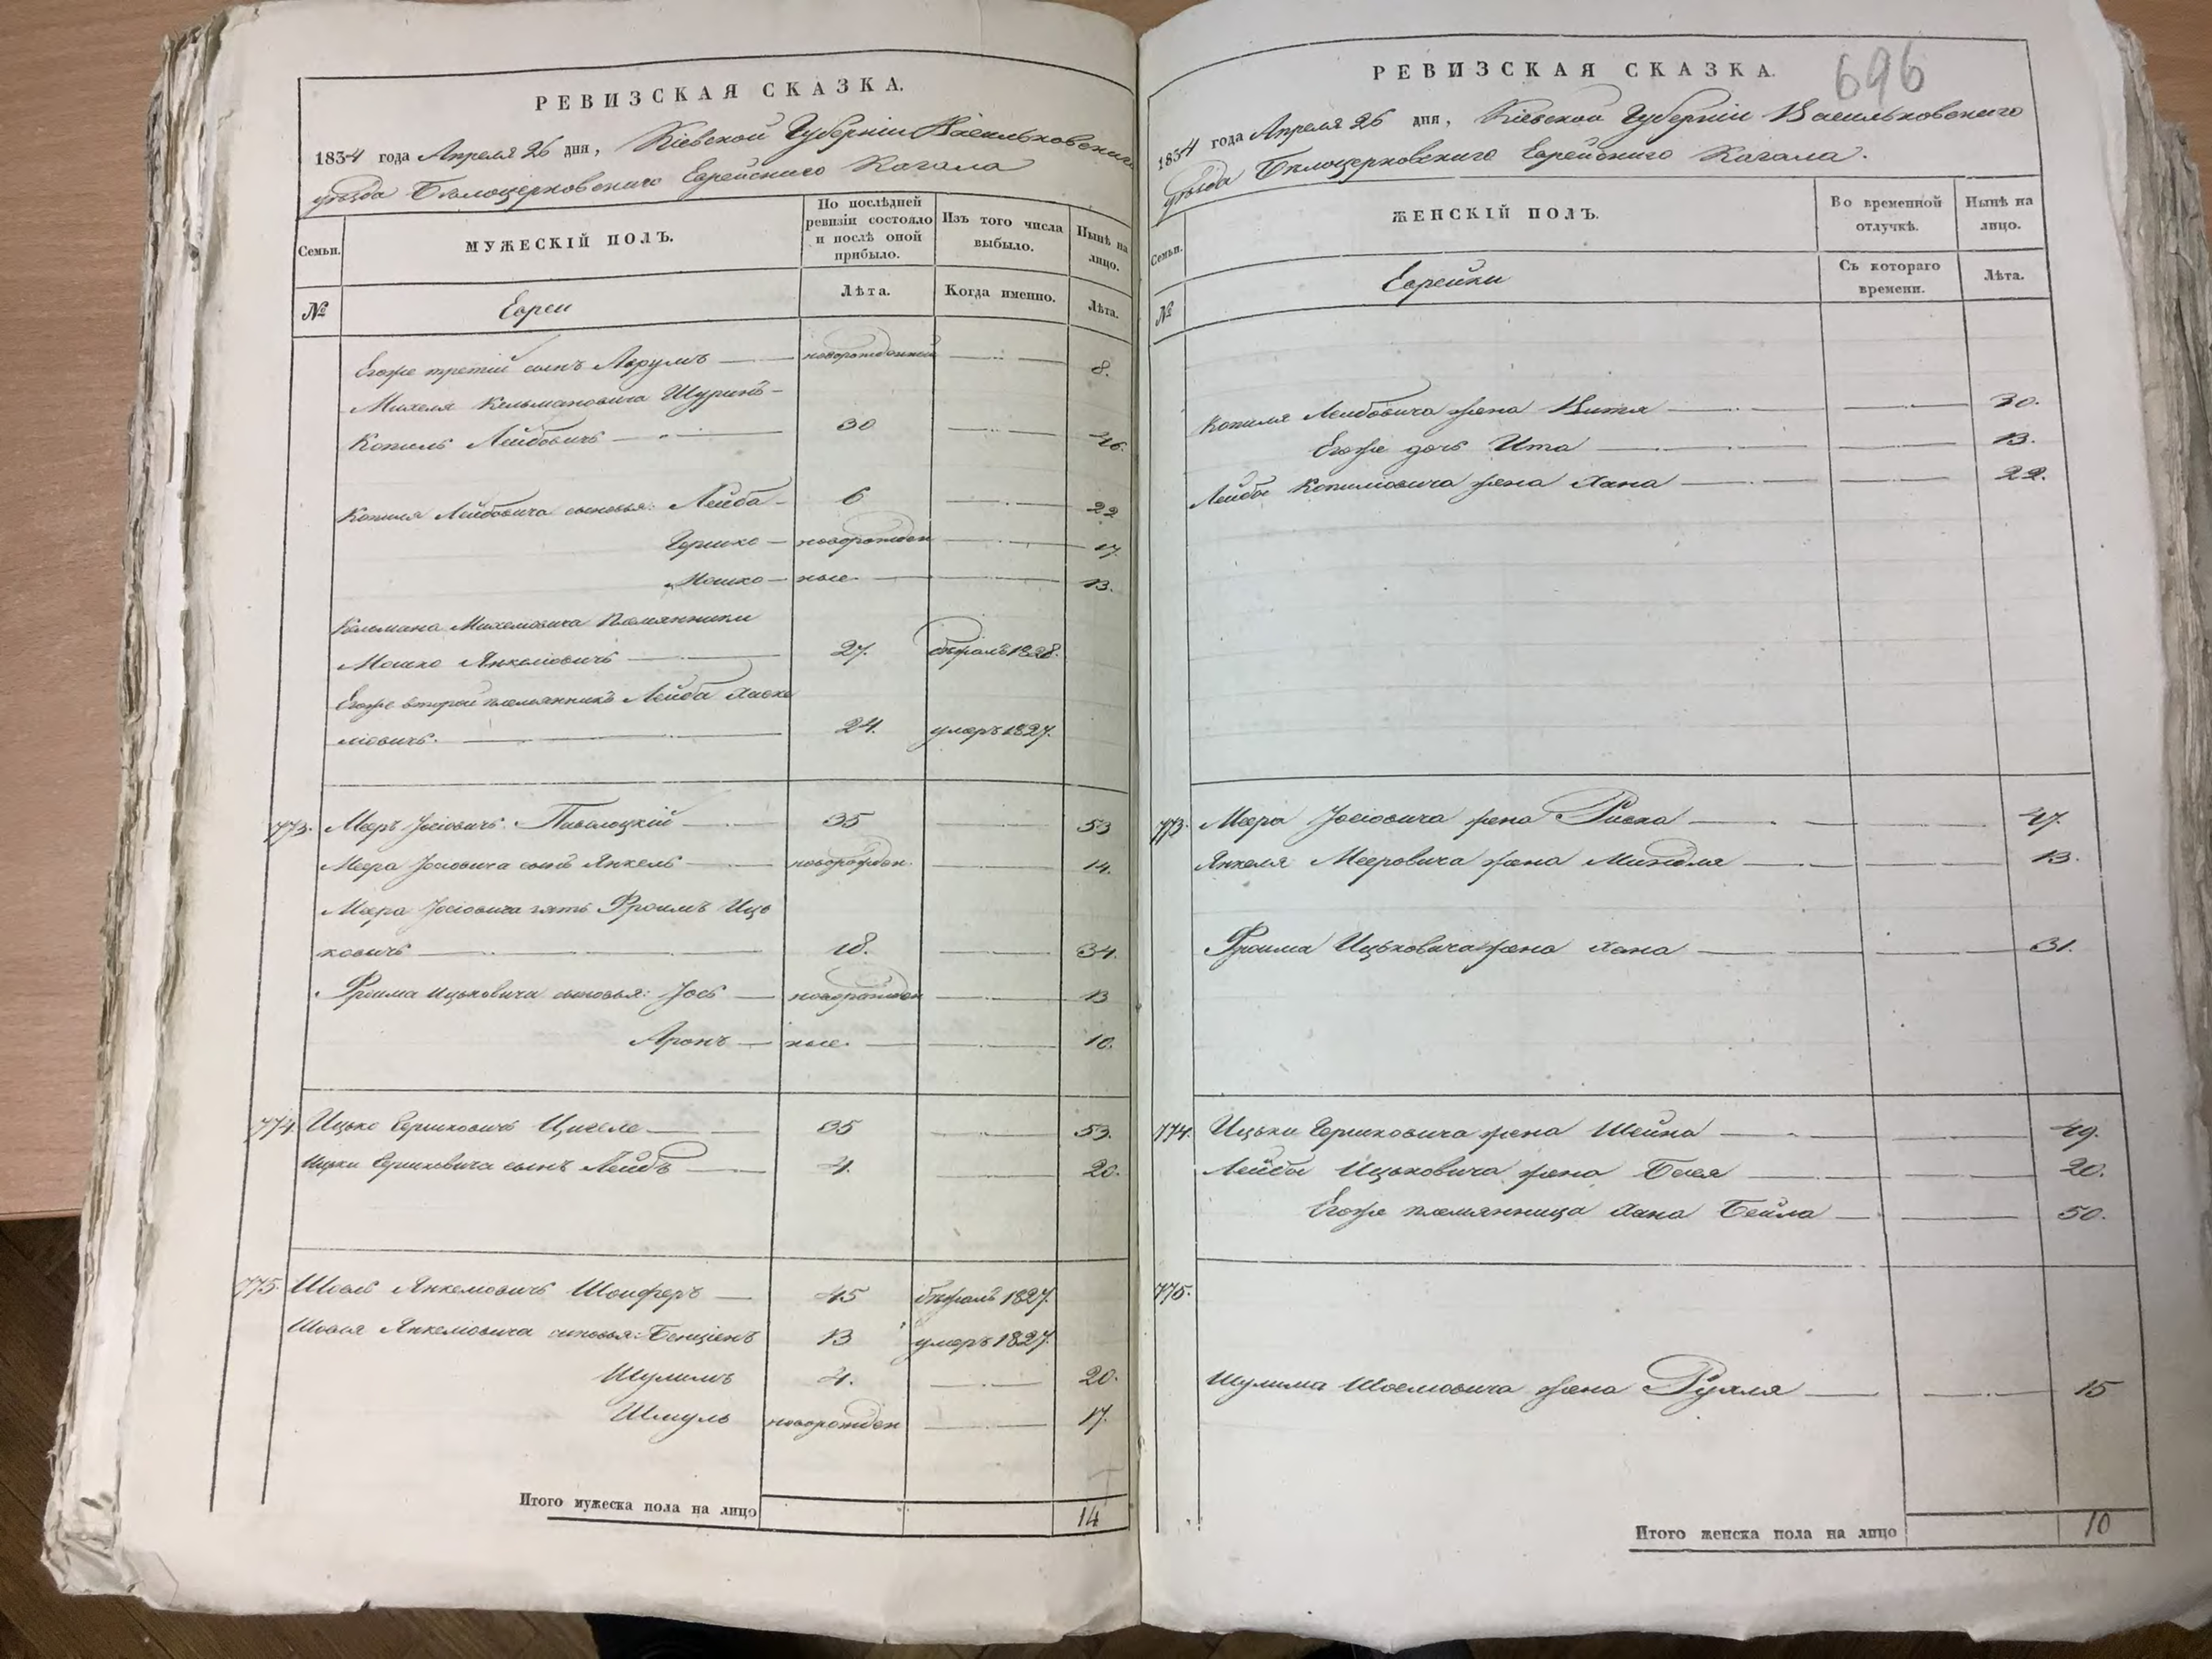 РЕВИЗСКАЯ СКАЗКА.
1834 года Апреля 26 дня, Кіевской Губерніи Васильковскаго
уѣзда Бѣлоцерковскаго Еврейскаго Кагала
Семьи.
МУЖЕСКІЙ ПОЛЪ.
По послѣдней ревизіи состояло и послѣ оной прибыло.
Изъ того числа выбыло.
Нынѣ на лицо.
№
Евреи
Лѣта.
Когда именно.
Лѣта.
Егоже третій сынъ Сруль новорожденный 8.
Михеля Кельмановича Шуринъ
Копиль Лейбовичъ 30 46.
Копиля Лейбовича сыновья: Лейба 6 22
Гершко новорожден 17.
Мошко ные 13.
Кельмана Михелiовича племянники
Мошко Янкелiовичъ 27. бѣжалъ 1828.
Егоже второй племянникъ Лейба Хаске
лiовичъ. 24. умеръ 1827.
773. Меръ Iосiовичъ Пиволоцкій 35 53
Меера Iосiовича сынъ Янкель новорожден. 14.
Меера Iосiовича зять Фроимъ Иць
ковичъ 18. 34.
Фроима Ицьковича сыновья: Iось новорожден 13
Аронъ ные. 10.
774. Ицько Гершковичъ Цигеле 35 53.
Ицьки Гершковича сынъ Лейбъ 4. 20.
775. Шоель Янкелiовичъ Шоиферъ 45 бѣжалъ 1827.
Шоеля Янкелiовича сыновья: Бенцiонъ 13 умеръ 1827.
Шулимъ 4. 20.
Шмуль новорожден 17.
Итого мужеска пола на лицо 14
696
РЕВИЗСКАЯ СКАЗКА.
1834 года Апреля 26 дня, Кіевской Губерніи Васильковскаго
уѣзда Бѣлоцерковскаго Еврейскаго Кагала.
Семьи.
ЖЕНСКІЙ ПОЛЪ.
Во временной отлучкѣ.
Нынѣ на лицо.
№
Еврейки
Съ котораго времени.
Лѣта.
Копиля Лейбовича жена Витя 30.
Егоже дочь Ита 13.
Лейбы Копилiовича жена Хана 22.
773. Меера Iосiовича жена Ривка 47.
Янкеля Мееровича жена Миндля 13.
Фроима Ицьковича жена Хана 31.
774. Ицьки Гершковича жена Шейна 49.
Лейбы Ицьковича жена Бася 20.
Егоже племянница Хана Бейла 50.
775.
Шулима Шоелiовича жена Рухля 15
Итого женска пола на лицо 10